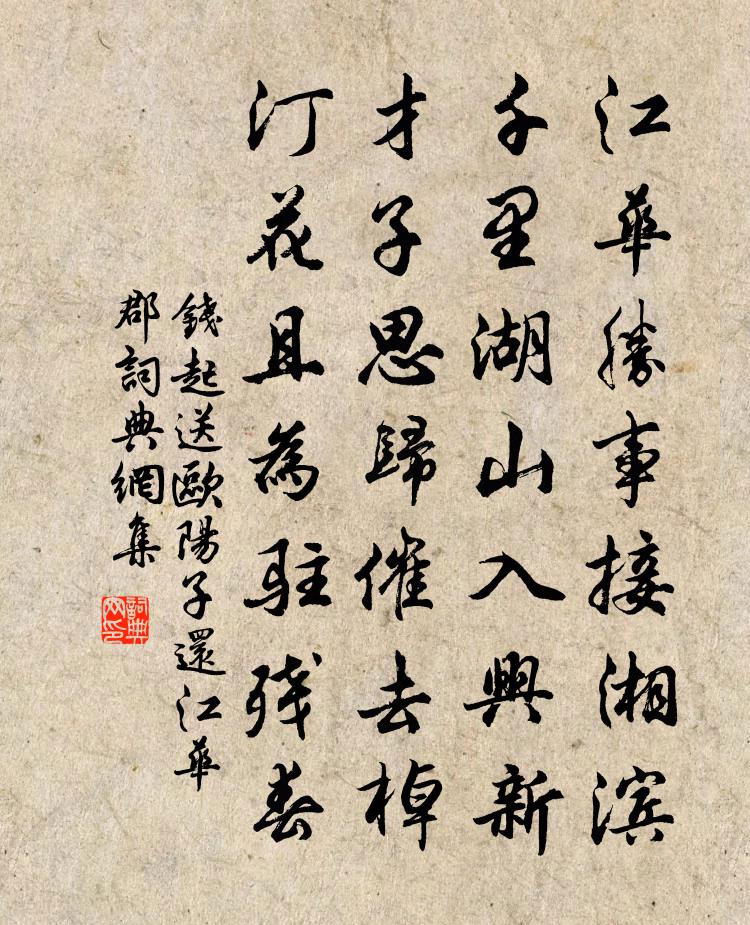 江華勝事接湘滨
千里湖山入興新
才子思歸催去棹
汀花且為駐残春
錢起送歐陽子還江華
郡詞典網集
詞典网印